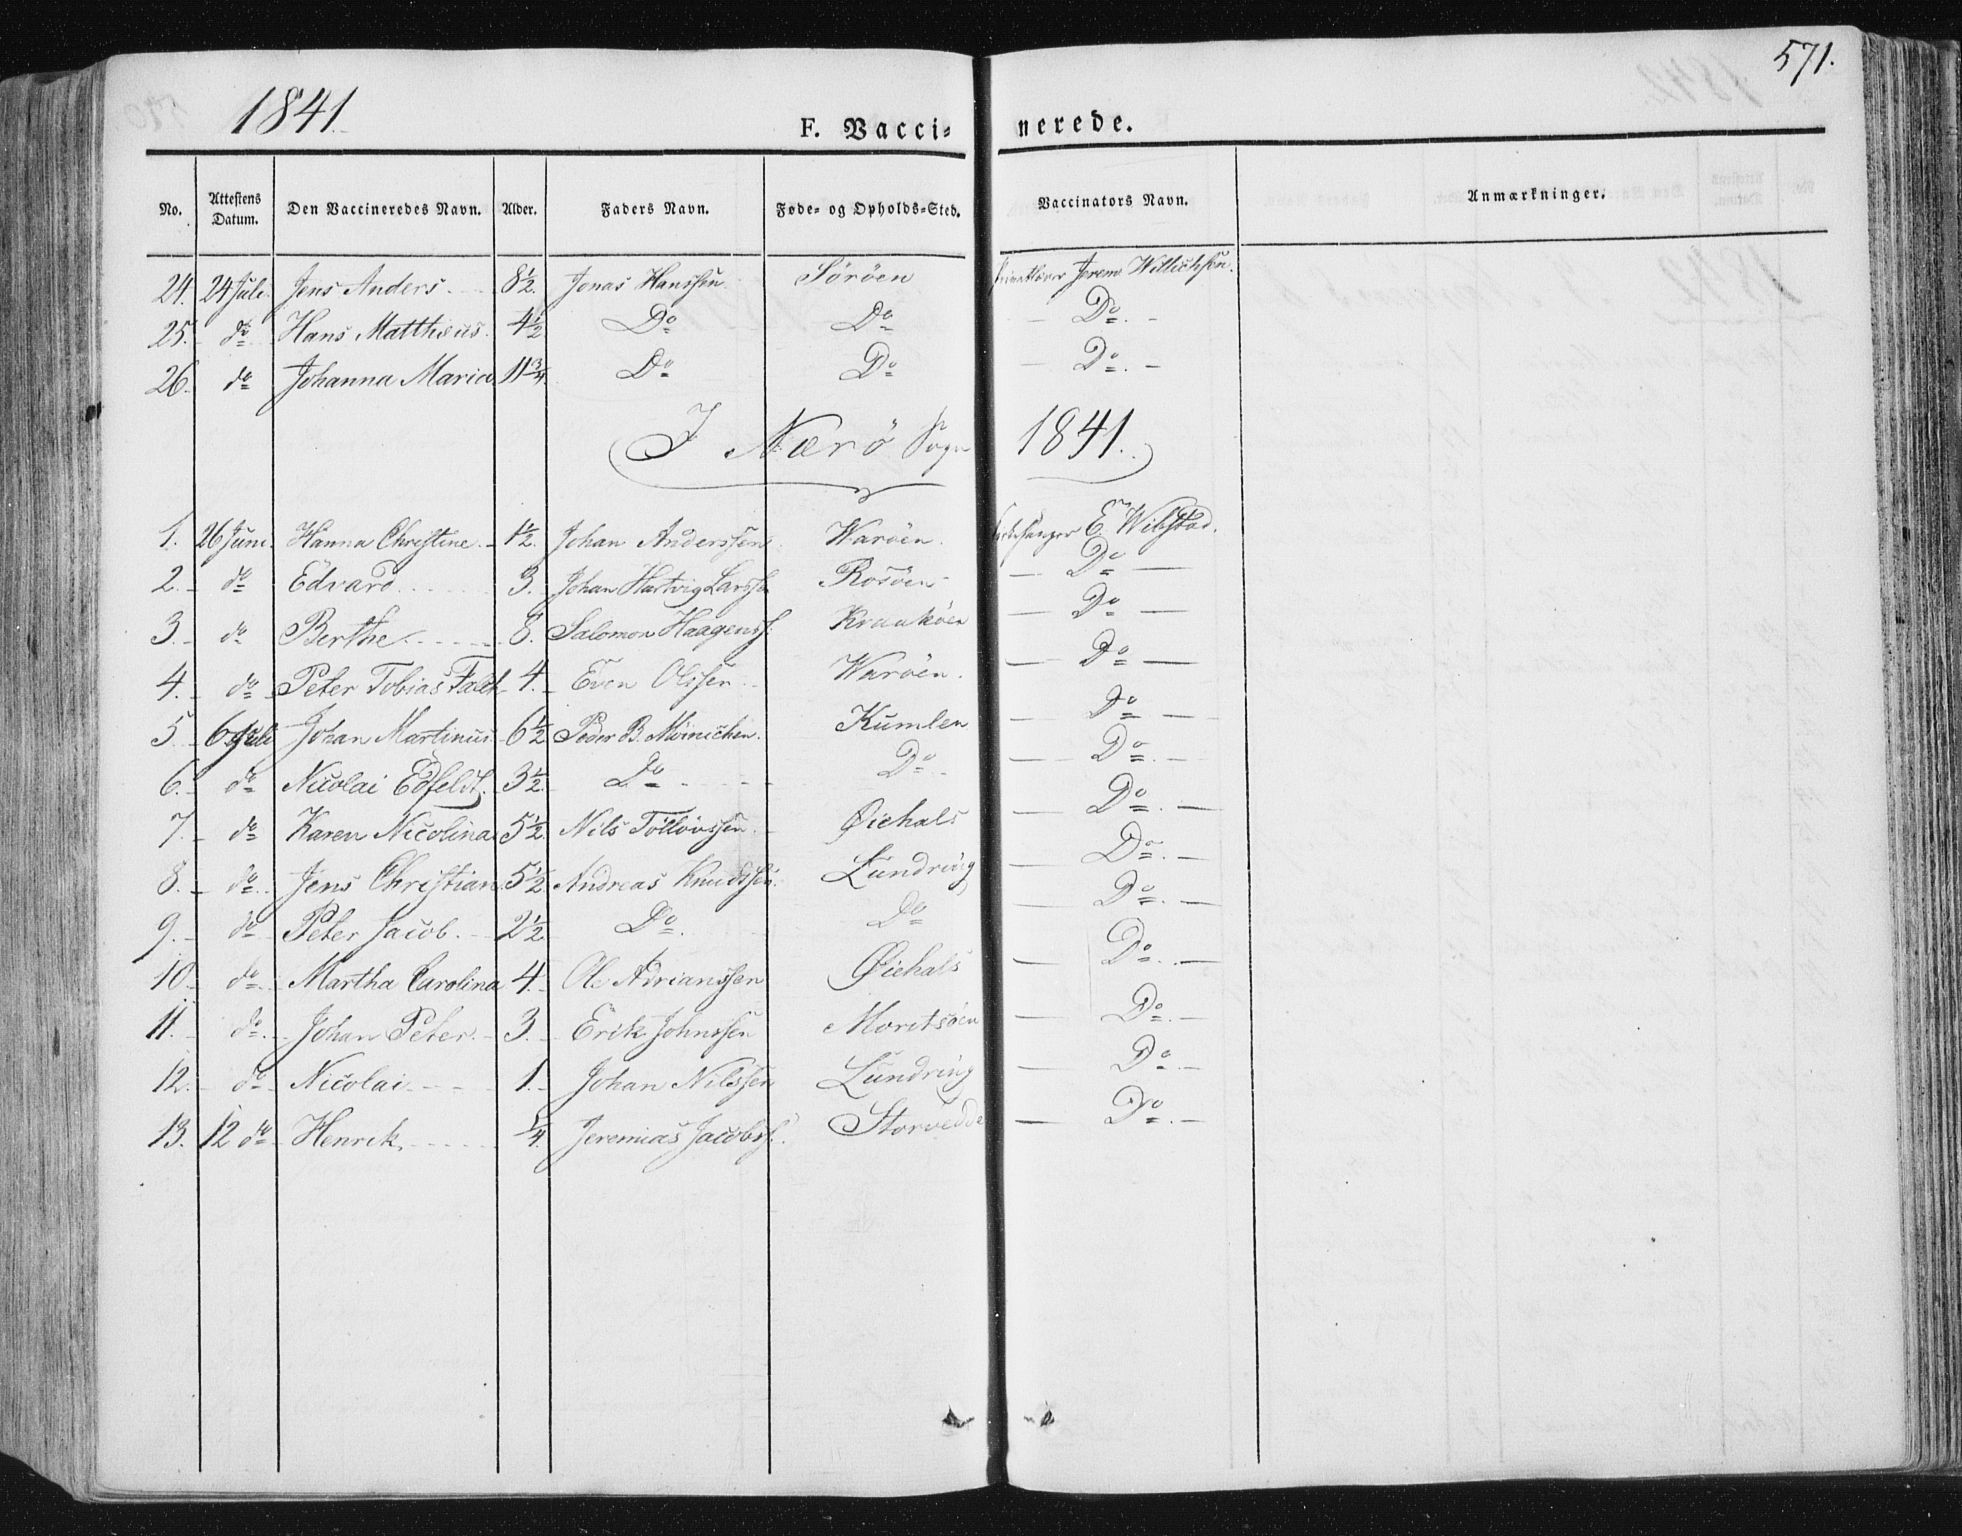 571.
1841.
F. Vaccinerede.
No. | Attestens Datum. | Den Vaccineredes Navn. | Alder. | Faders Navn. | Føde- og Opholds-Sted. | Vaccinators Navn. | Anmærkninger.
24. | 24 Juli. | Jens Anders. | 8½ | Jonas Hanssen | Söröen | Jerem Willichsen.
25. | do | Hans Matthæus. | 4½ | Do | Do | Do
26. | do | Johanna Maria | 11¾ | Do | Do | Do
I Nærö Sogn 1841.
1. | 26 Juni. | Hanna Christine. | 1½. | Johan Anderssen | Waröen. | E Wibstad.
2. | do | Edvard | 3. | Johan Hartvig Larss | Rosöen | Do
3. | do | Berthe | 8. | Salomon Haagenss. | Kraaköen | Do
4. | do | Peter Tobias Falck | 4. | Even Olssen | Waröen. | Do
5. | 6 Juli | Johan Martinus | 6½ | Peder B. Möinichen. | Kumlen | Do
6. | do | Nicolai Edfeldt. | 3½ | Do | Do | Do
7. | do | Karen Nicolina | 5½ | Nils Tollövssen | Øiehals | Do
8. | do | Jens Christian | 5½ | Andreas Knudssen. | Lundring | Do
9. | do | Peter Jacob. | 2½ | Do | Do | Do
10. | do | Martha Carolina | 4. | Ole Adrianssen | Øiehals | Do
11. | do | Johan Peter. | 3. | Erik Johnssen | Moritsöen | Do
12. | do | Nicolai | 1. | Johan Nilssen | Lundring | Do
13. | 12 do | Henrik. | ¼. | Jeremias Jacobss. | Storvedde | Do